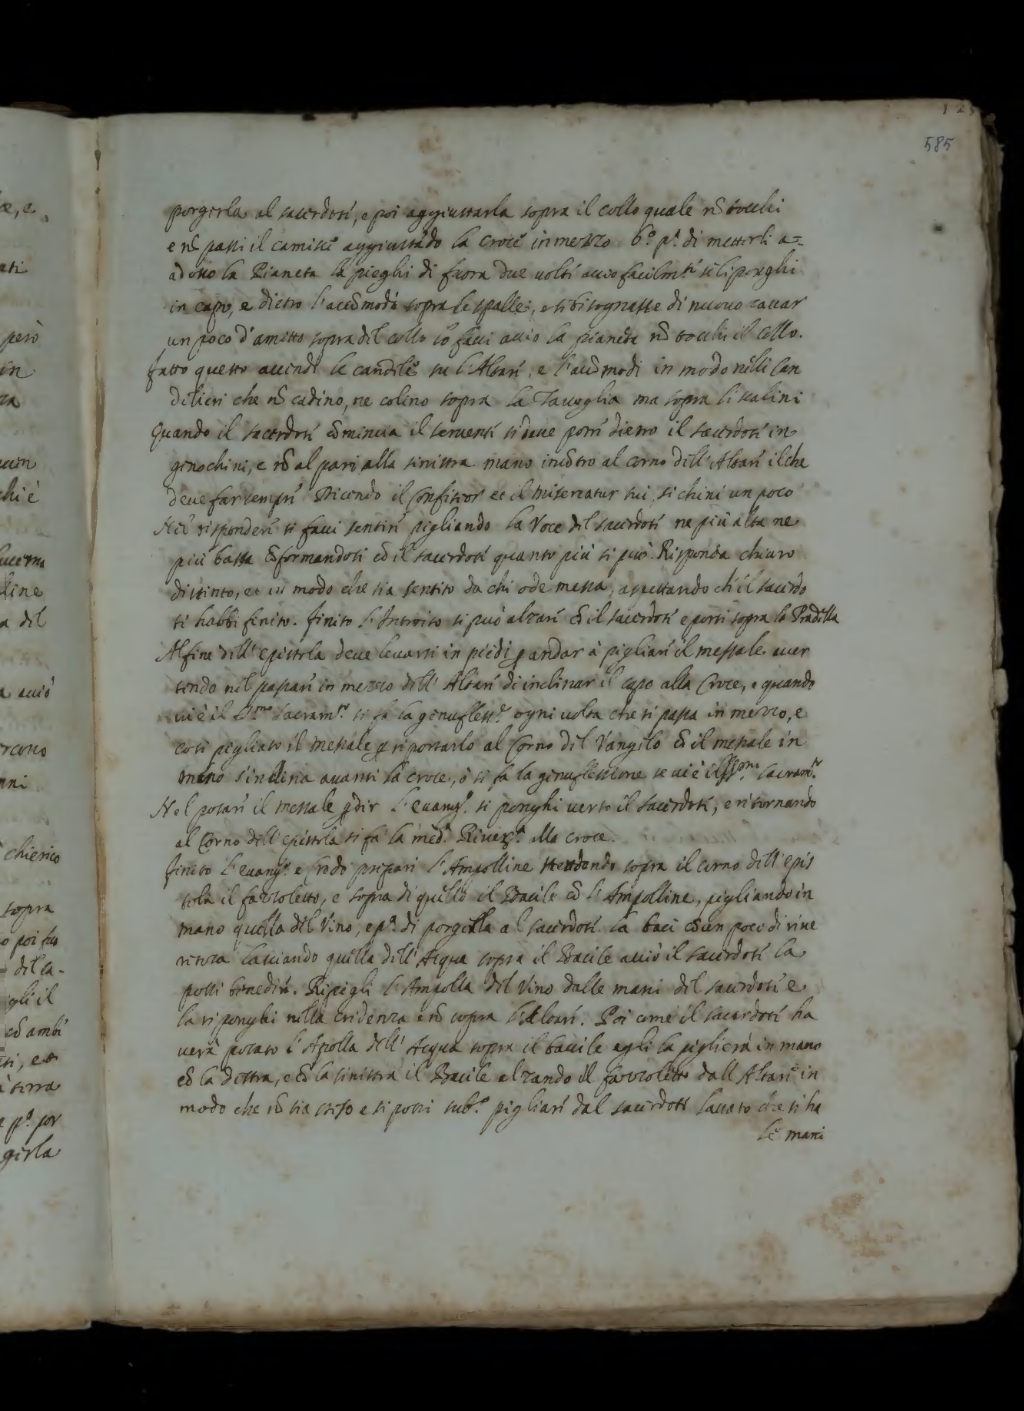 585
porgerla al sacerdoti, e poi aggiustarla sopra il collo quale nõ tocchi
e nõ passi il camisce aggiustãdo la croce in mezzo. pª. di metterli a=
adosso la Pianeta la pieghi di fuora due uolti accio si li ponghi
in capo, e dietro l'accõmodi sopra le spalle, e si bisognasse di nuouo cauar
un poco d'amitto sopra dil collo lo facci accio la pianeta nõ tocchi il collo.
fatto questo accindi le candile su l'Altari, e l'accõmodi in modo nilli can
dilieri che nõ cadino, ne colino sopra la Tauoglia ma sopra li scalini
Quando il sacerdoti cõmincia il seruenti si deue porri dietro il sacerdoti in
genochini, e nõ al pari alla sinistra mano incõtro al corno dell'Altari il che
deue far sempri Dicendo il Confiteor et il misereatur tui si chini un poco
Nil risponderi si facci sentiri pigliando la Voce dil sacerdoti ne più alta ne
più bassa cõformandosi cõ il sacerdoti quanto più si può. Risponda chiaro
distinto, et in modo che sia sentito da chi ode messa, aspettando ch'il sacerdo
ti habbi finito. finito l'Introito si può alzari cõ il sacerdoti e porsi sopra la Pradilla
Al fine dill'epistola deue leuarsi in piedi p andar à pigliari il messale auer
tendo nil passari in mezzo dill'Altari di inclinar il capo alla Croce, e quando
ui è il SSmo Sacramto si fà la genufless.e ogni uolta che si passa in mezzo, e
cosi pigliato il messale p riportarlo al Corno dil Vangilo cõ il messale in
mano s'inclina auanti la croce, ò si fa la genuflessione se ui è il SSmo Sacramto
Nel posari il messale p dir l'euangº. si ponghi uerso il sacerdoti, e ritornando
al Corno dell'epistola si fà la medª. Riuerª. alla croce.
finito l'euangº. e Credo prepari l'Ampolline stendendo sopra il corno dill'epis
tola il fazzoletto, e sopra di quillo il Bacile cõ l'Ampolline, pigliando in
mano quella dil Vino, e pª. di porgerla al sacerdoti la baci cõ un poco di riue
renza lasciando quilla dill'Acqua sopra il Bacile acciò il sacerdoti la
possi benediri. Ripigli l'Ampolla del Vino dalle mani del sacerdoti e
la riponghi nilla cridenza e nõ sopra l'Altari. Poi come il sacerdoti ha
uerà posato l'Apolla dell'Acqua sopra il bacile egli la piglierà in mano
cõ la destra, e cõ la sinistra il Bacile alzando il fazzoletto dall'Altari in
modo che nõ sia steso e si possi subº. pigliari dal sacerdoti lauato che si ha
le mani